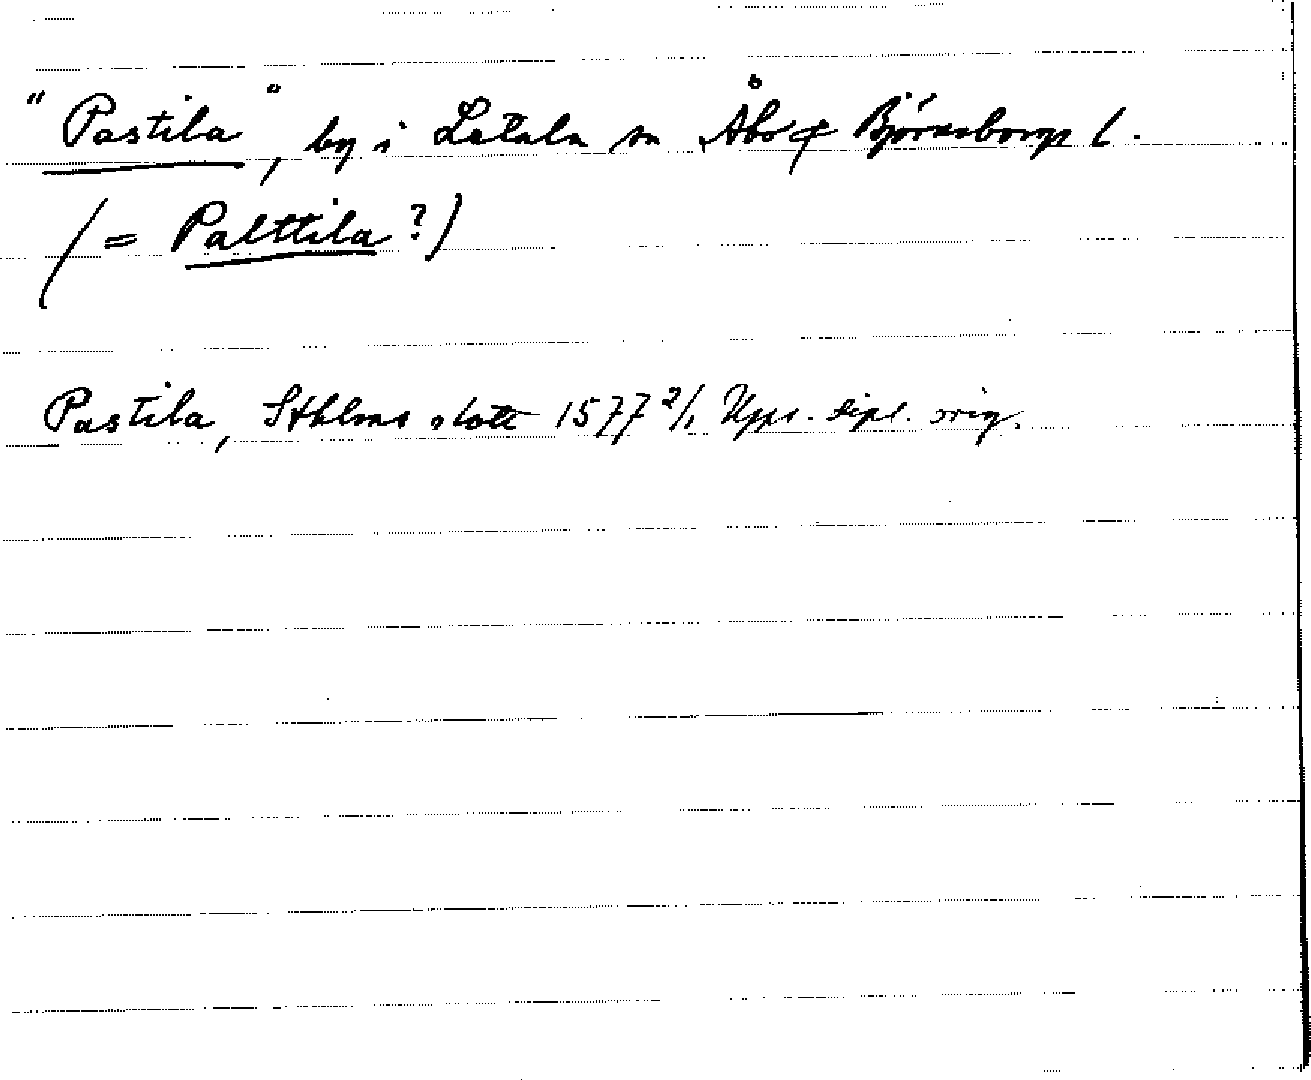 "Pastila", by i Letala sn Åbo & Björneborgs l.
(= Palttila?)
Pastila, Sthlms slott 1577 2/1 Upps. dipl. orig.